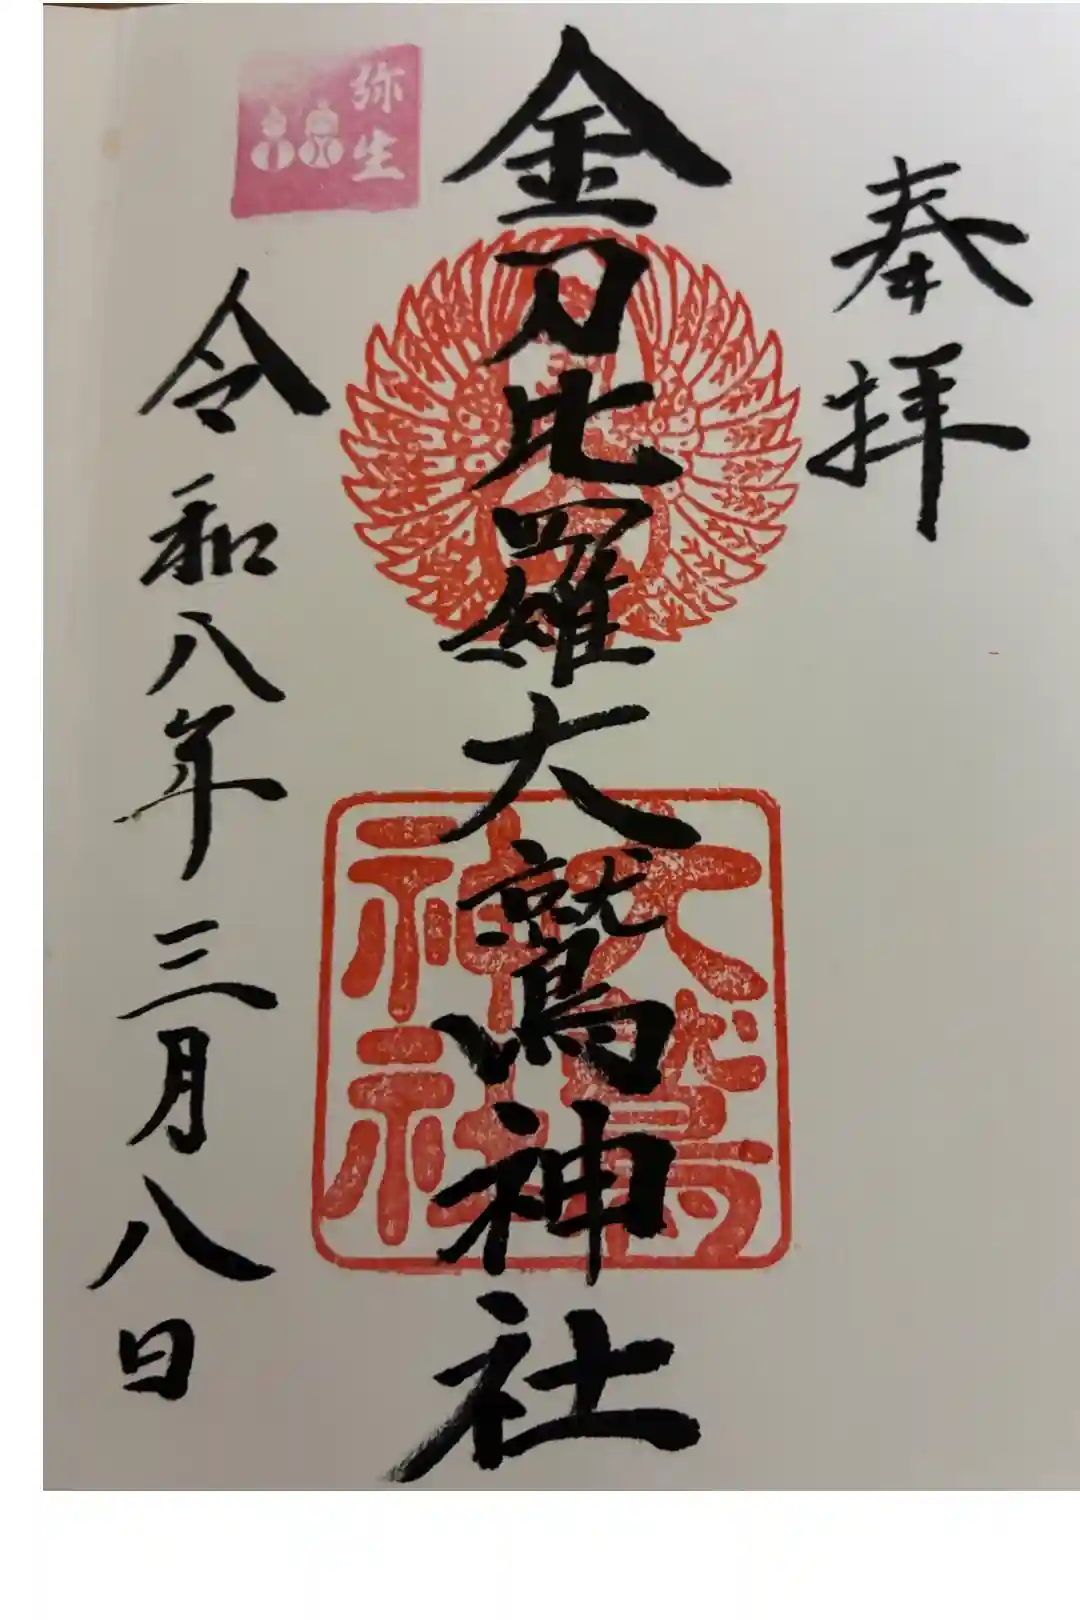 奉拝
金刀比羅大鷲神社
大鷲
神社
弥生
令和八年三月八日